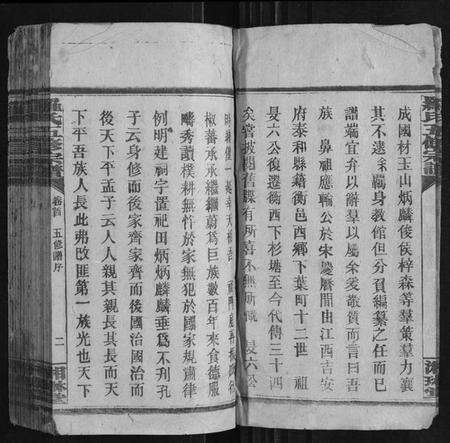 成國材玉山炳麟俊侯梓森等羣策羣力襄
其不逮余羈身教館但分負編纂之任而已
譜端宜弁以辭羣以屬余爰敬質而言曰吾
族 鼻祖應輪公於宋慶曆間由江西吉安
府泰和縣籍衡邑西鄉下葉町十三世祖
晏六公復遷衡西下杉塘至今代傳三十四
矣嘗披閱舊
椒蕃承承繼繼蔚爲巨族數百年來食德服
疇秀讀樸耕無忤於家無犯於國家規肅律
例明建祠宇置祀田炳炳麟麟垂爲不刋孔
子云身修而後家齊家齊而後國治國治而
後天下平孟子云人人親其親長其長而天
下平吾族人長此弗改匪第一族光也天下
羅氏五修宗譜
卷首
五修譜序
二